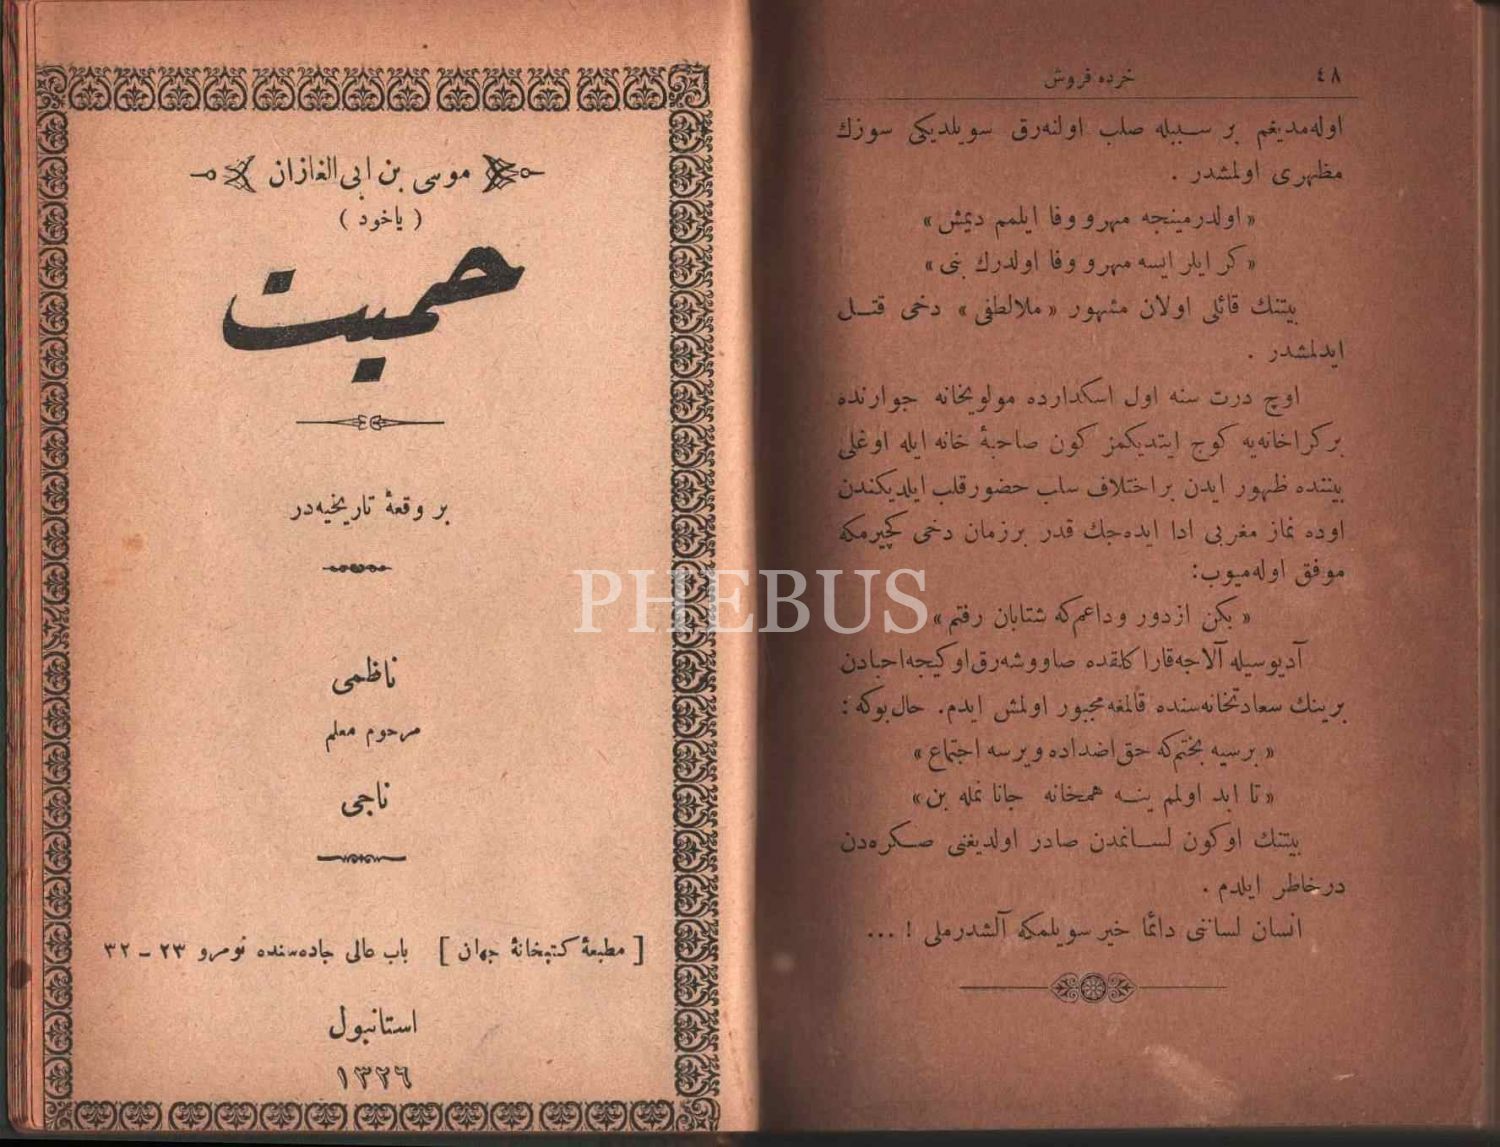 ٤٨
خرده فروش
اوله‌مدیغم بر سببله صلب اولنه‌رق سویلدیکی سوزك
مظهری اولمشدر .
« اولدرمینجه مهر و وفا ایلمم دیمش »
« کر ایلر ایسه مهر و وفا اولدرك بنی »
بیتنك قائلی اولان مشهور « ملالطفی » دخی قتل
ایدلمشدر .
اوچ درت سنه اول اسکدارده مولویخانه جوارنده
بر کراخانه‌یه کوچ ایتدیکمز کون صاحبهٔ خانه ایله اوغلی
بیننده ظهور ایدن بر اختلاف سلب حضور قلب ایلدیکندن
اوده نماز مغربی ادا ایده‌جك قدر بر زمان دخی کچیرمکه
موفق اوله‌میوب:
« بکن از دور وداعم که شتابان رفتم »
آدیوسیله آلاجه قارا کلقده صاووشه‌رق او کیجه احبادن
برینك سعادتخانه‌سنده قالمغه مجبور اولمش ایدم. حال بوکه :
« بر سیه بختم که حق اضداده ویرسه اجتماع »
« تا ابد اولم ینه همخانه جانا نمله بن »
بیتنك اوکون لسانمدن صادر اولدیغنی صکره‌دن
در خاطر ایلدم .
انسان لساننی دائما خیر سویلمکه آلشدرملی ! ...
موسی بن ابی الغازان
( یاخود )
حمیت
بر وقعهٔ تاریخیه‌در
ناظمی
مرحوم معلم
ناجی
[ مطبعهٔ کتبخانهٔ جهان ] باب عالی جاده‌سنده نومرو ٢٣ – ٣٢
استانبول
١٣٢٦
PHEBUS